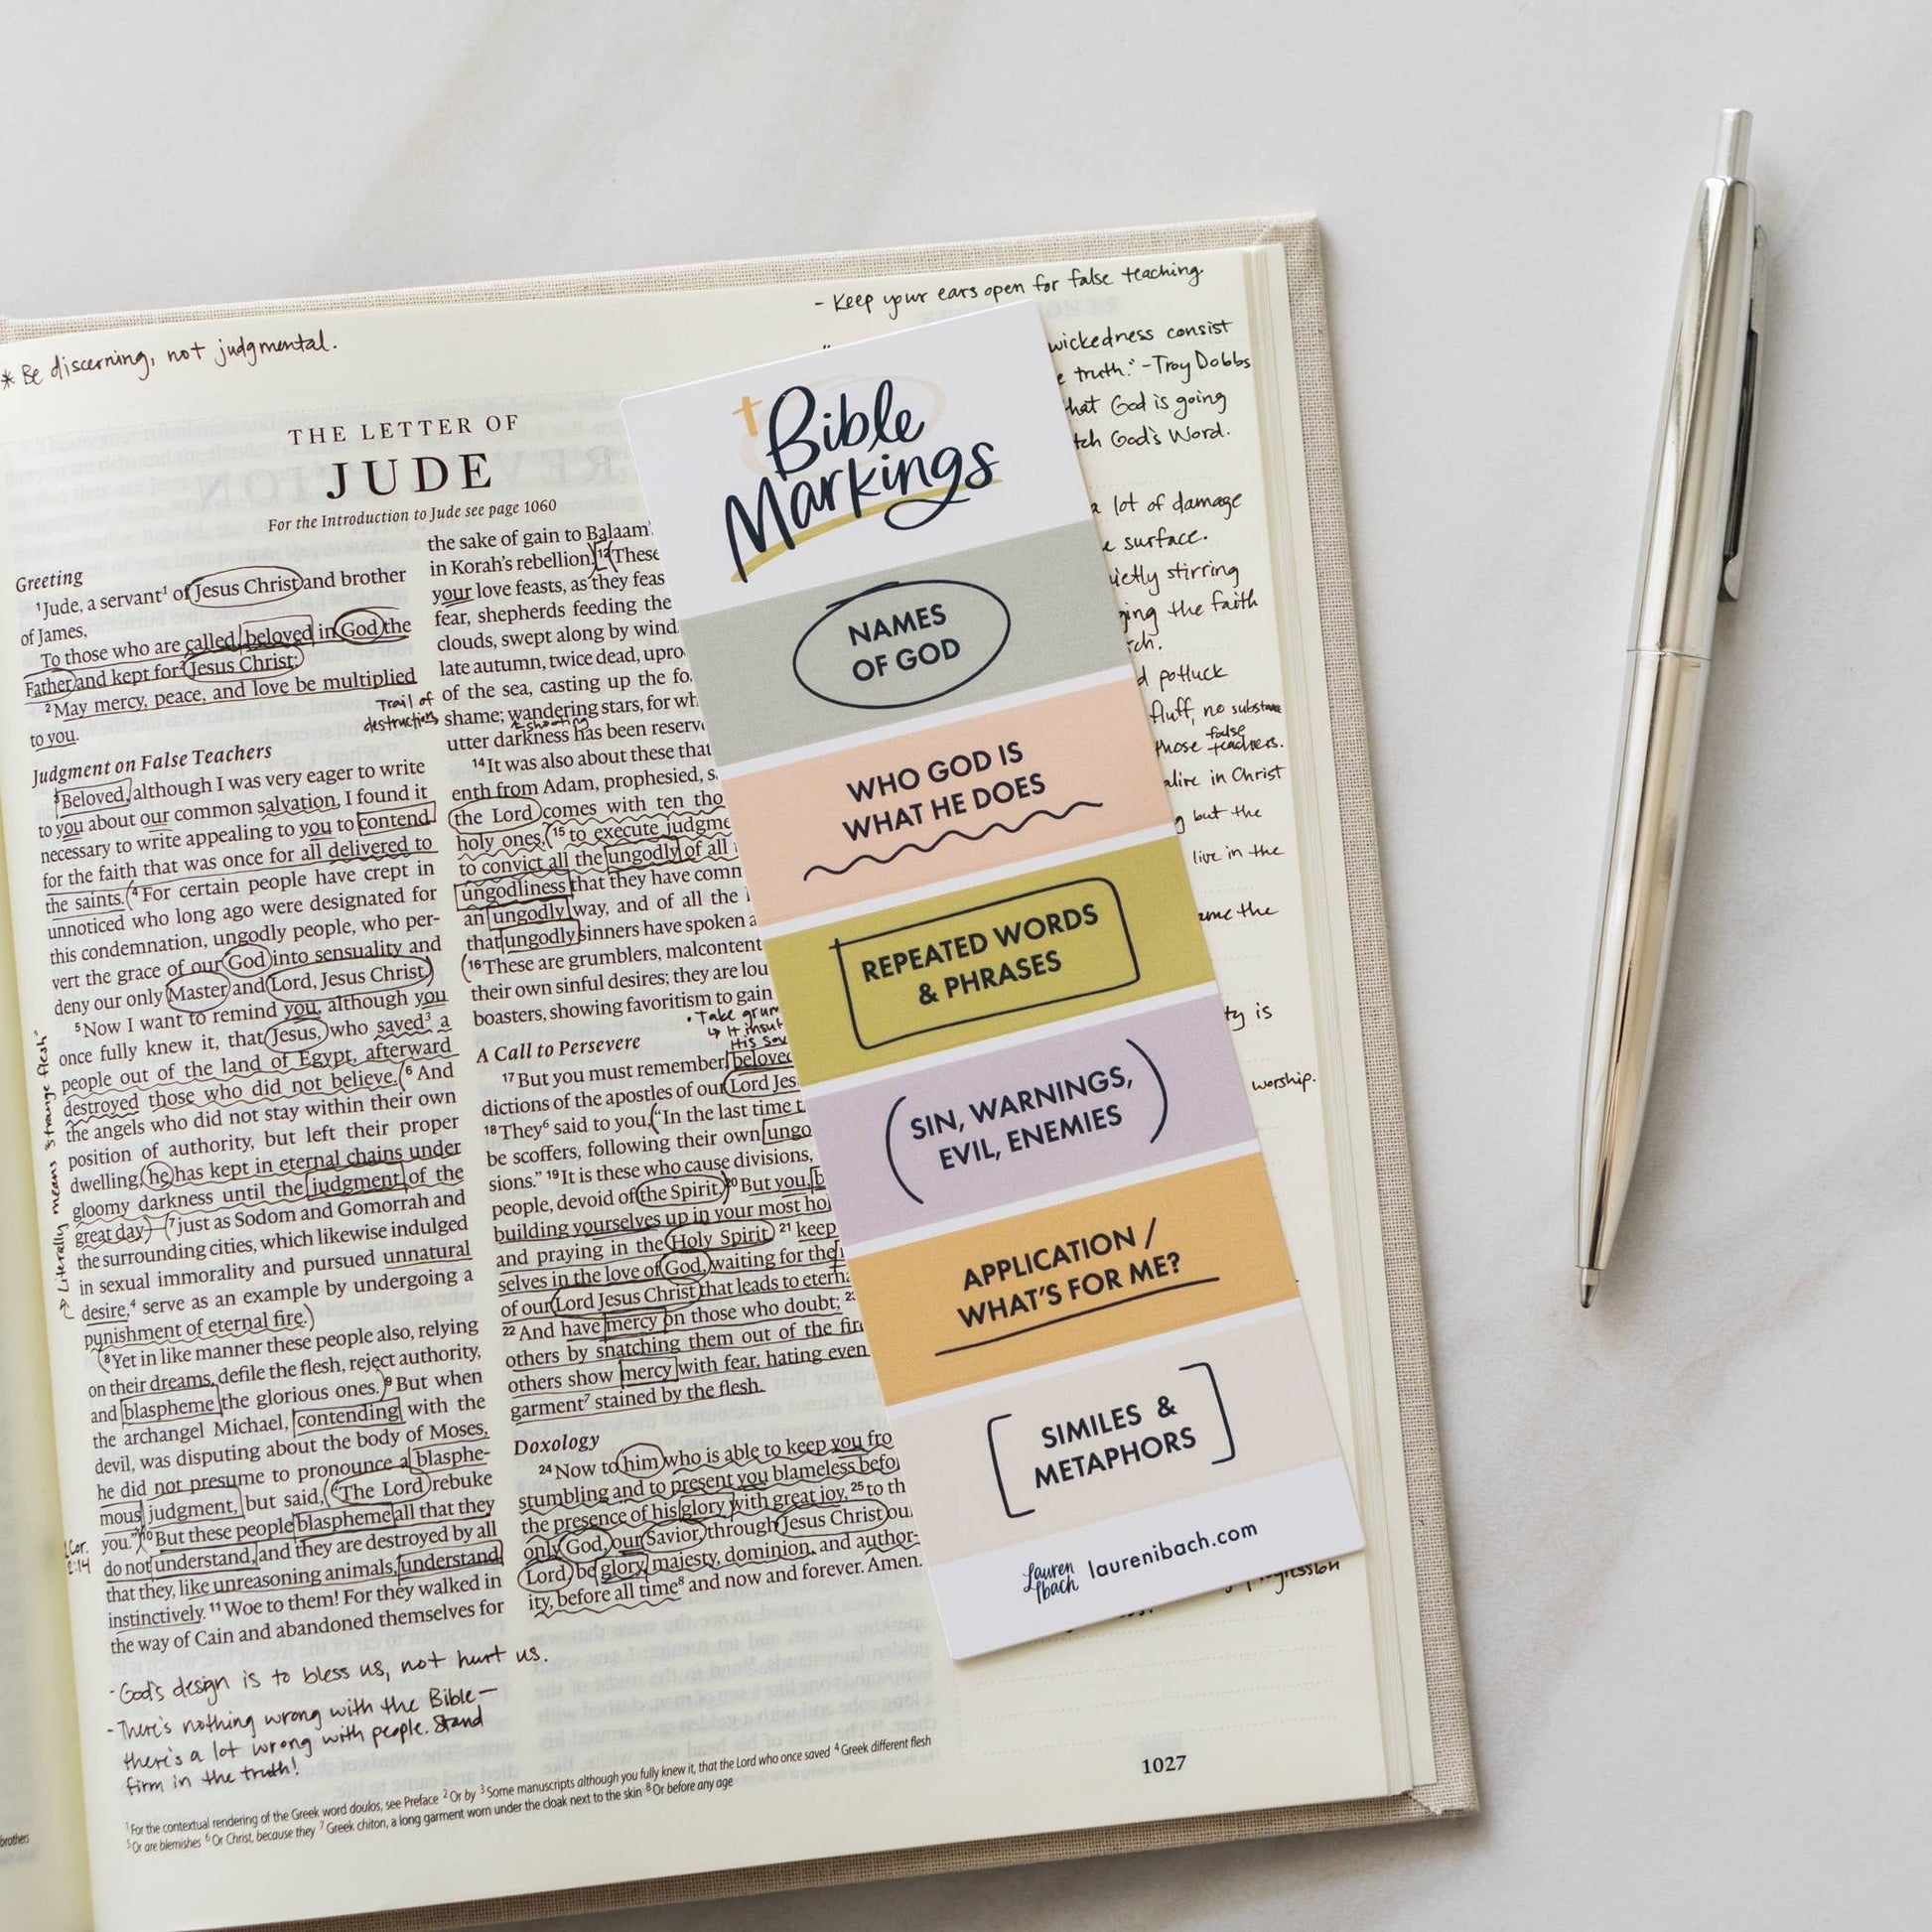 * Be discerning, not judgmental.
- Keep your ears open for false teaching
THE LETTER OF
JUDE
For the Introduction to Jude see page 1060
Greeting
1Jude, a servant1 of Jesus Christ and brother
of James,
To those who are called, beloved in God the
Father and kept for2 Jesus Christ:
2May mercy, peace, and love be multiplied
to you.
Judgment on False Teachers
3Beloved, although I was very eager to write
to you about our common salvation, I found it
necessary to write appealing to you to contend
for the faith that was once for all delivered to
the saints. 4For certain people have crept in
unnoticed who long ago were designated for
this condemnation, ungodly people, who per-
vert the grace of our God into sensuality and
deny our only Master and Lord, Jesus Christ.
5Now I want to remind you, although you
once fully knew it, that Jesus, who saved3 a
people out of the land of Egypt, afterward
destroyed those who did not believe. 6And
the angels who did not stay within their own
position of authority, but left their proper
dwelling, he has kept in eternal chains under
gloomy darkness until the judgment of the
great day— 7just as Sodom and Gomorrah and
the surrounding cities, which likewise indulged
in sexual immorality and pursued unnatural
desire,4 serve as an example by undergoing a
punishment of eternal fire.
→ Literally means "strange flesh"
8Yet in like manner these people also, relying
on their dreams, defile the flesh, reject authority,
and blaspheme the glorious ones. 9But when
the archangel Michael, contending with the
devil, was disputing about the body of Moses,
he did not presume to pronounce a blasphe-
mous judgment, but said, "The Lord rebuke
you." 10But these people blaspheme all that they
do not understand, and they are destroyed by all
that they, like unreasoning animals, understand
instinctively. 11Woe to them! For they walked in
the way of Cain and abandoned themselves for
Cor.
2:14
the sake of gain to Balaam'
in Korah's rebellion. 12These
your love feasts, as they feas
fear, shepherds feeding the
clouds, swept along by wind
late autumn, twice dead, upro
of the sea, casting up the fo
shame; wandering stars, for wh
utter darkness has been reserv
Trail of
destruction
shooting
14It was also about these that
enth from Adam, prophesied, s
the Lord comes with ten tho
holy ones, 15to execute judgme
to convict all the ungodly of all
ungodliness that they have comm
an ungodly way, and of all the
that ungodly sinners have spoken a
16These are grumblers, malcontent
their own sinful desires; they are lou
boasters, showing favoritism to gain
• Take grum
↳ It insul
His sov
A Call to Persevere
17But you must remember, beloved
dictions of the apostles of our Lord Jes
18They6 said to you, "In the last time t
be scoffers, following their own ungo
sions." 19It is these who cause divisions,
people, devoid of the Spirit. 20But you, b
building yourselves up in your most ho
and praying in the Holy Spirit, 21keep
selves in the love of God, waiting for the
of our Lord Jesus Christ that leads to eterna
22And have mercy on those who doubt; 23
others by snatching them out of the fir
others show mercy with fear, hating even
garment7 stained by the flesh.
Doxology
24Now to him who is able to keep you fro
stumbling and to present you blameless befo
the presence of his glory with great joy, 25to th
only God, our Savior, through Jesus Christ our
Lord, be glory, majesty, dominion, and author-
ity, before all time8 and now and forever. Amen.
-God's design is to bless us, not hurt us.
-There's nothing wrong with the Bible—
there's a lot wrong with people. Stand
firm in the truth!
1For the contextual rendering of the Greek word doulos, see Preface 2Or by 3Some manuscripts although you fully knew it, that the Lord who once saved 4Greek different flesh
5Or are blemishes 6Or Christ, because they 7Greek chiton, a long garment worn under the cloak next to the skin 8Or before any age
brothers
Bible
Markings
NAMES
OF GOD
WHO GOD IS
WHAT HE DOES
REPEATED WORDS
& PHRASES
(SIN, WARNINGS,
EVIL, ENEMIES)
APPLICATION /
WHAT'S FOR ME?
[SIMILES &
METAPHORS]
Lauren
Ibach
laurenibach.com
wickedness consist
truth." -Troy Dobbs
that God is going
God's Word.
a lot of damage
surface.
stirring
the faith
potluck
fluff, no substance
those false teachers.
alive in Christ
but the
live in the
the
is
worship.
1027